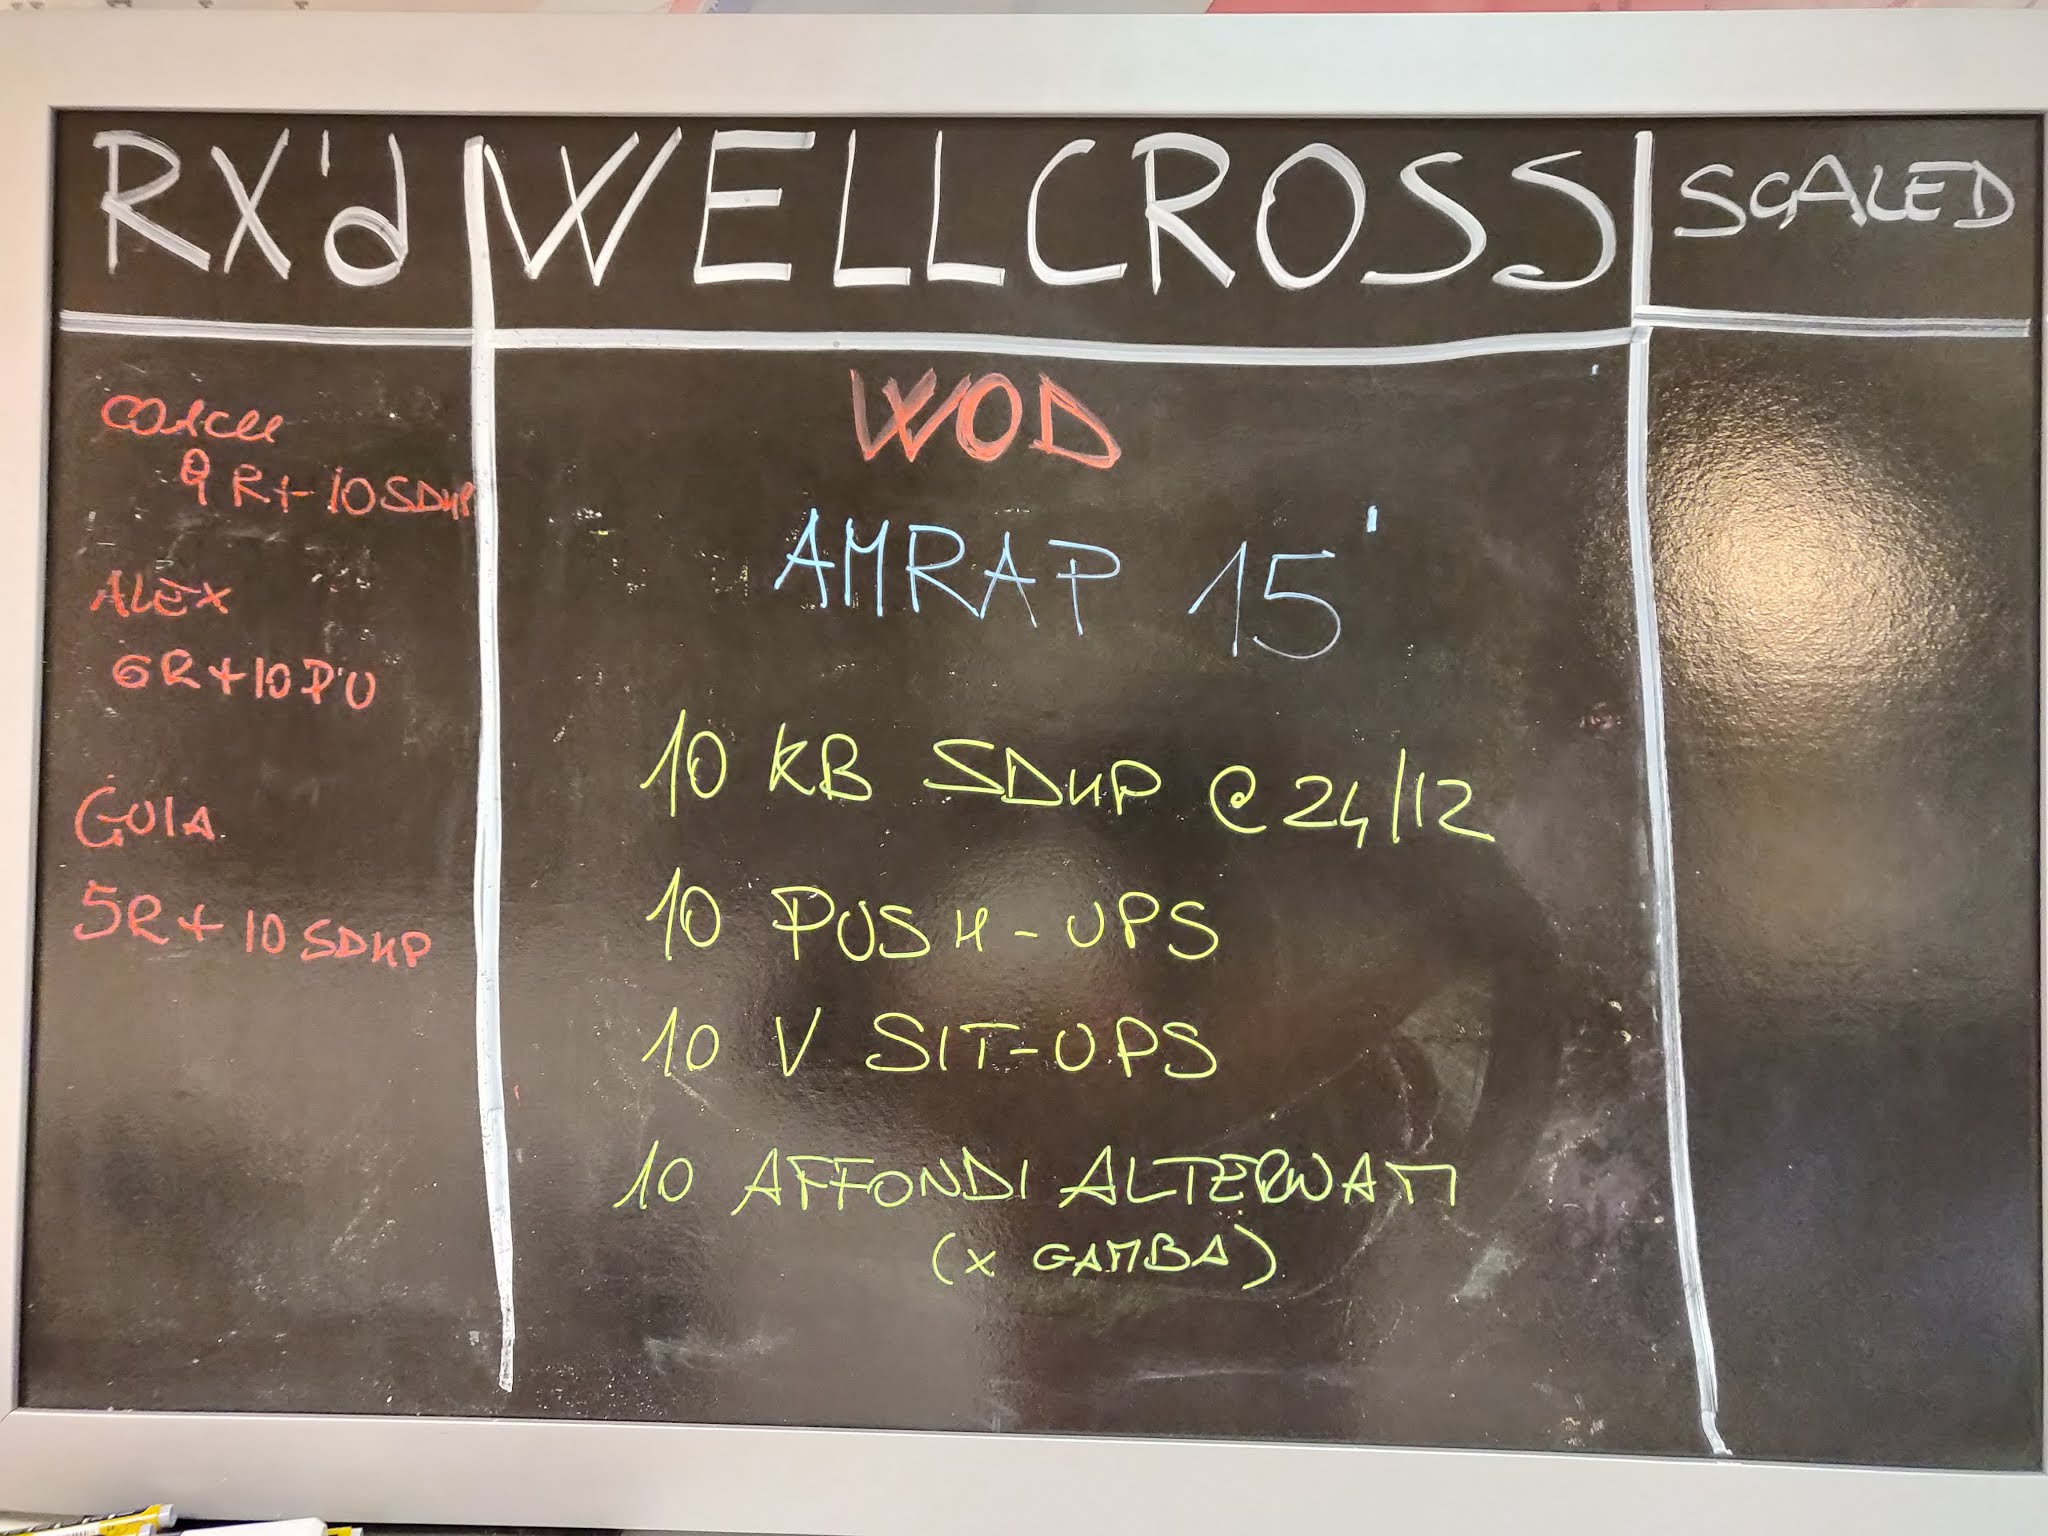 RX'd WELLCROSS SCALED
COACH
9 R + 10 SDHP
ALEX
6R + 10 P'U
GUIA
5R + 10 SDHP
WOD
AMRAP 15'
10 KB SDHP @ 24/12
10 PUSH-UPS
10 V SIT-UPS
10 AFFONDI ALTERNATI
(X GAMBA)